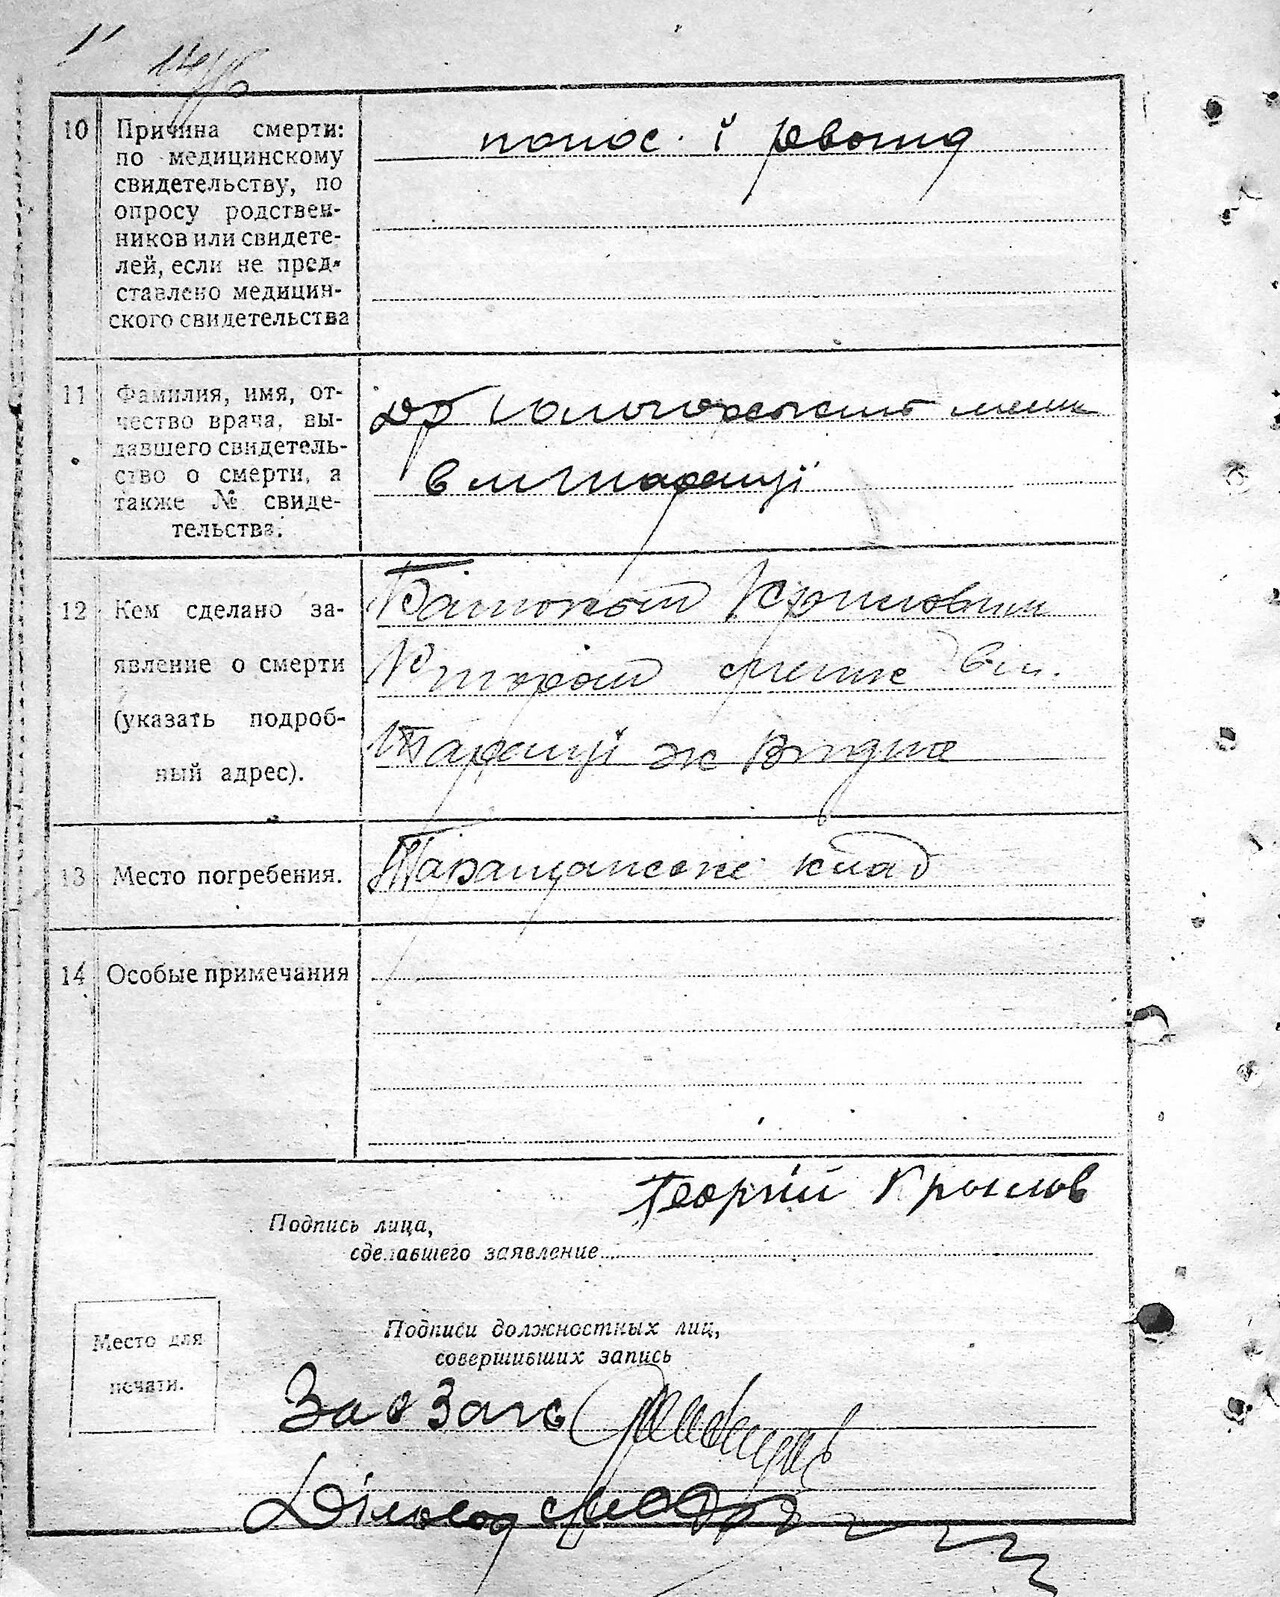 10 Причина смерти:
по медицинскому
свидетельству, по
опросу родствен-
ников или свидете-
лей, если не пред-
ставлено медицин-
ского свидетельства
понос і рвота
11 Фамилия, имя, от-
чество врача, вы-
давшего свидетель-
ство о смерти, а
также № свиде-
тельства.
др
в м Таращі
12 Кем сделано за-
явление о смерти
(указать подроб-
ный адрес).
Батьком Криловим
в м.
Таращі
13 Место погребения.
Таращанске клад
14 Особые примечания
Георгій Крылов
Подпись лица,
сделавшего заявление
Место для
печати.
Подписи должностных лиц,
совершивших запись
Зав Загс
Діловод